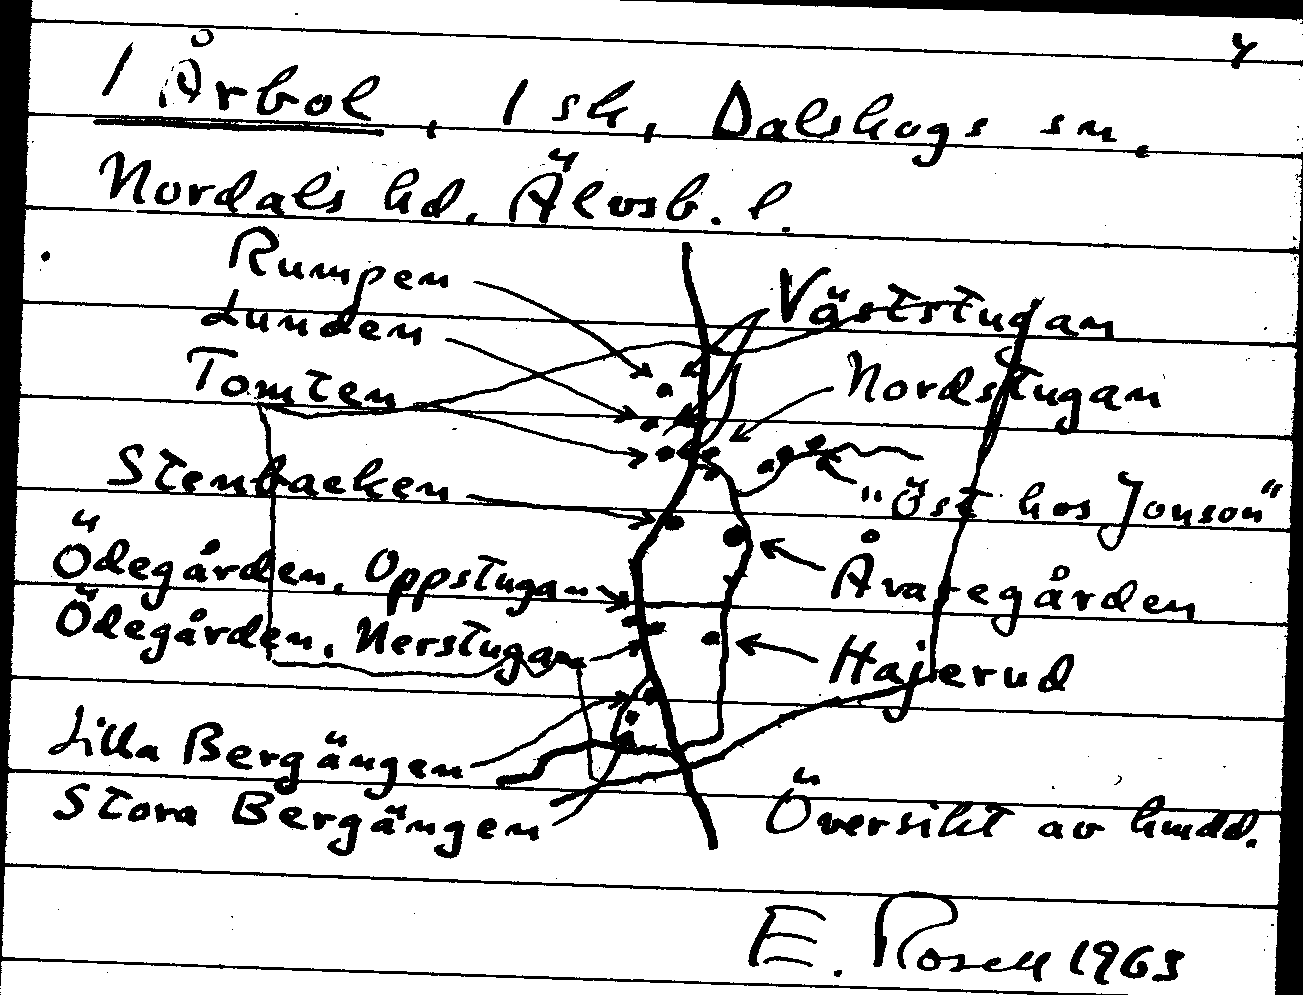 4
1 Årbol, 1 sk, Dalskogs sn,
Nordals hd, Älvsb. l.
Rumpen
Lunden
Tomten
Stenbacken
Ödegården, Oppstugan
Ödegården, Nerstugan
Lilla Bergängen
Stora Bergängen
Väststugan
Nordstugan
"Öst hos Jonson"
Åvaregården
Hajerud
Översikt av hmdd.
E. Rosell 1963